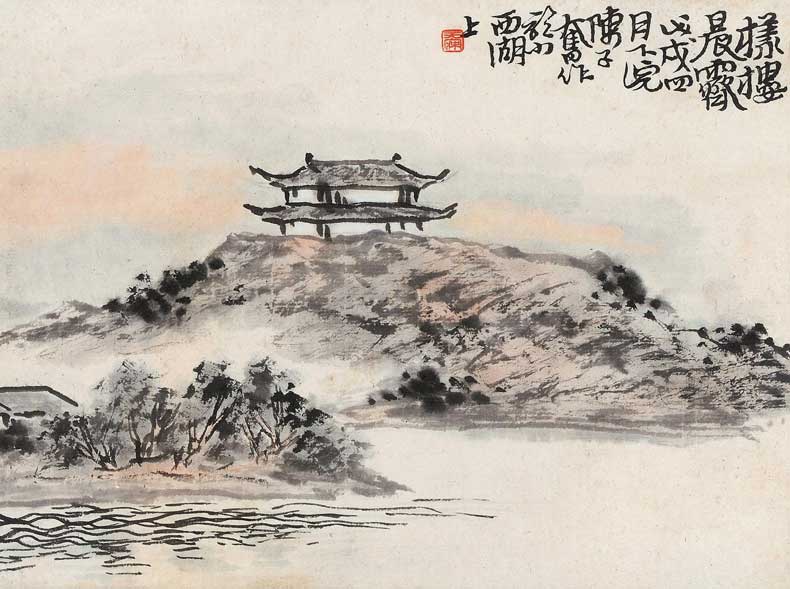 樣樓
晨霽
戊戌四
月下浣
陳子
奮作
於小
西湖
上